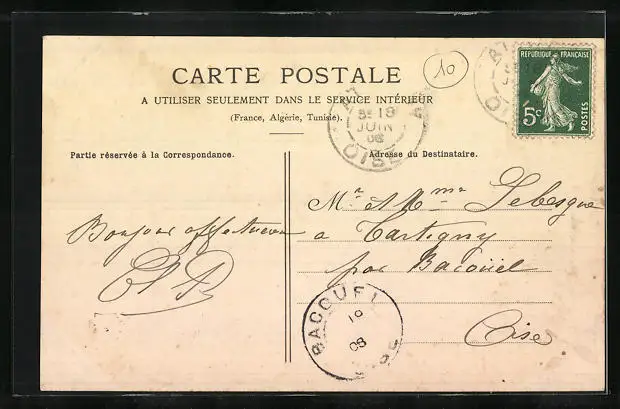 CARTE POSTALE
A UTILISER SEULEMENT DANS LE SERVICE INTÉRIEUR
(France, Algérie, Tunisie).
10
RÉPUBLIQUE FRANÇAISE
5c
POSTES
5E 19
JUIN
08
OISE
Partie réservée à la Correspondance.
Adresse du Destinataire.
Bonjour affectueux
Mr et Mme Lebesgue
a Tartigny
par Bacouel
Oise
BACOUEL
19
08
OISE